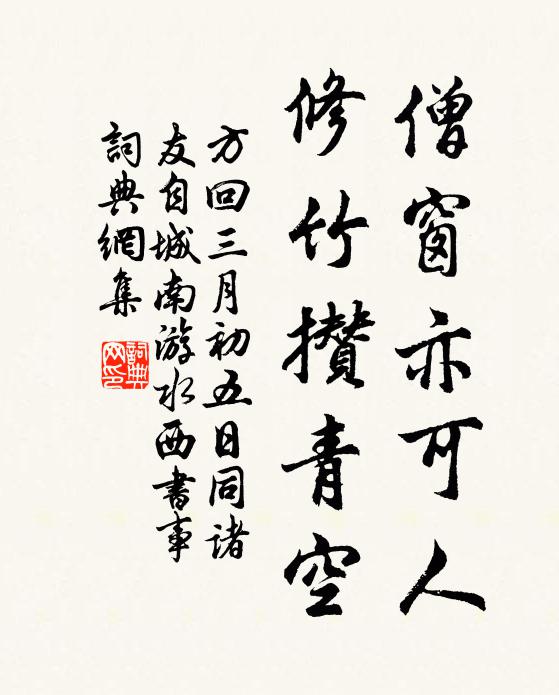 僧窗亦可人
修竹攅青空
方回三月初五日同諸
友自城南游水西書事
詞典網集
詞典網印